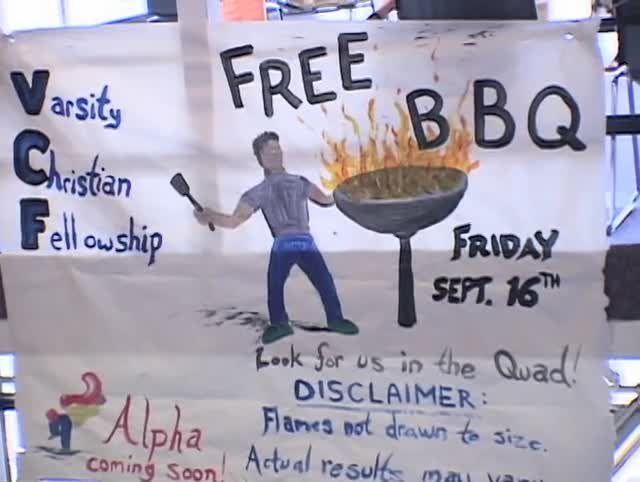 FREE
BBQ
Varsity
Christian
Fellowship
FRIDAY
SEPT. 16TH
Look for us in the Quad!
DISCLAIMER:
Flames not drawn to size.
Actual results may vary
Alpha
coming soon!